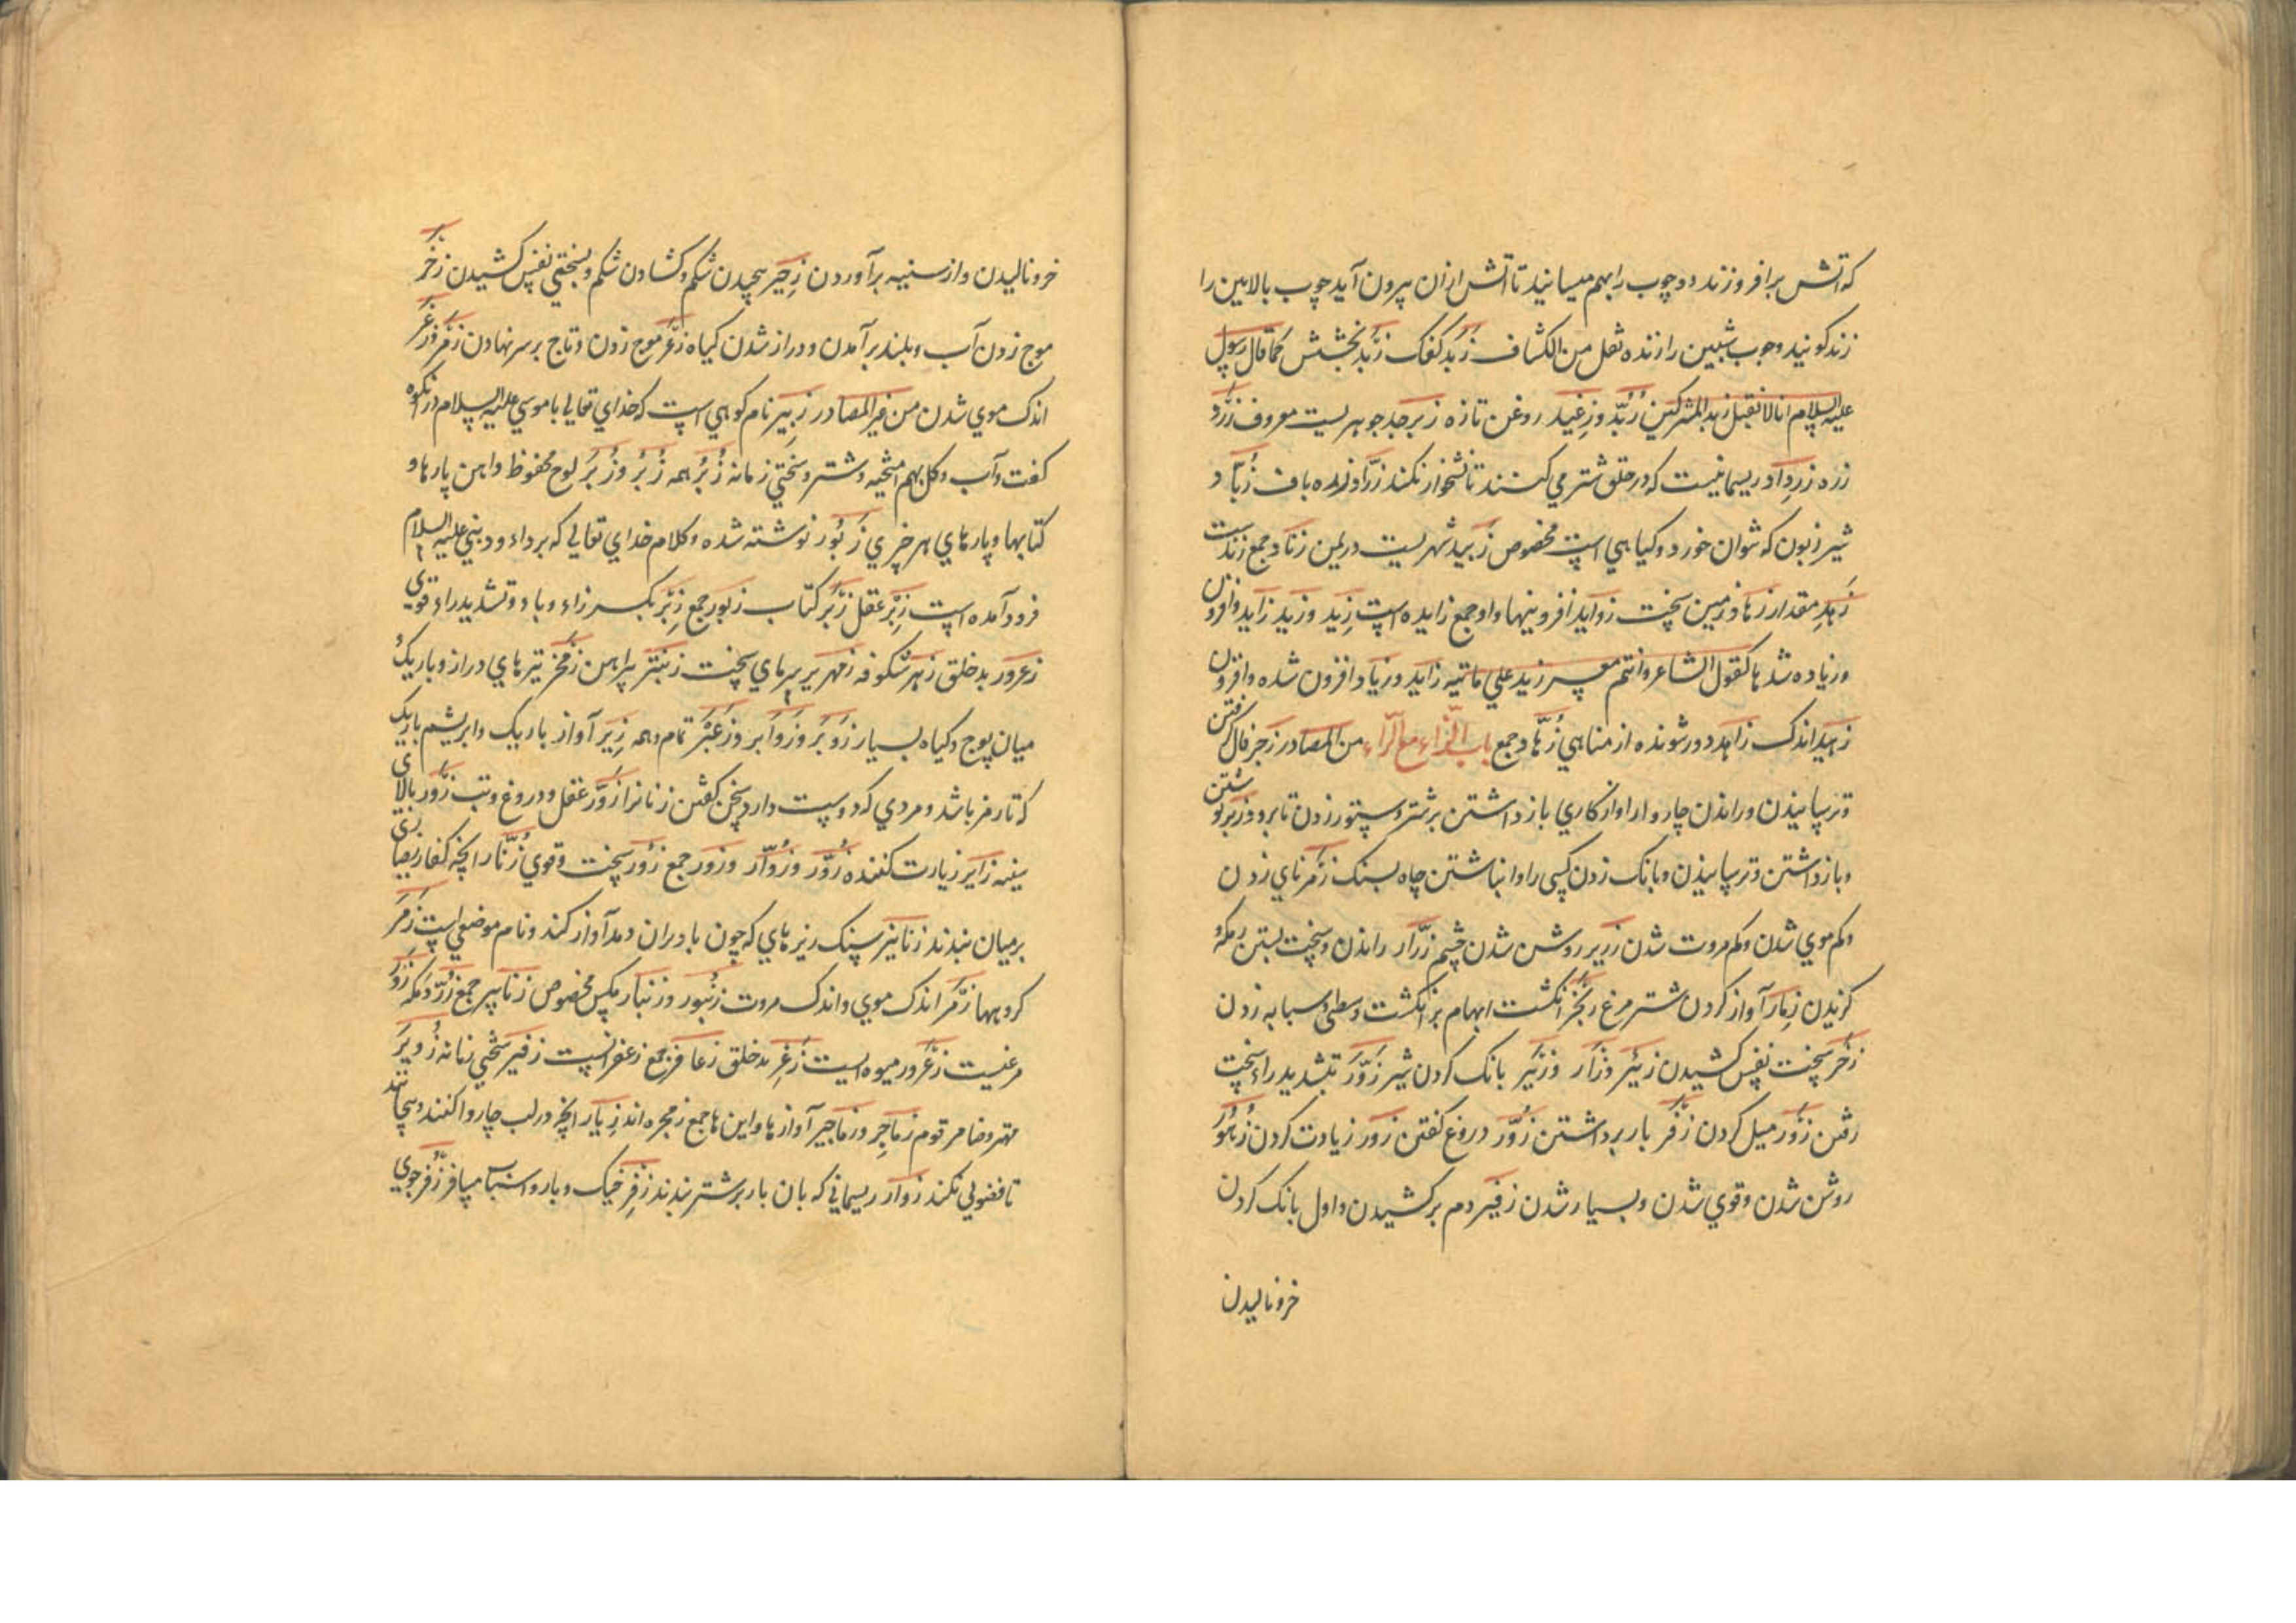 که آتش برافروزند و دو چوب را بهم میسانید تا آتش ازان بیرون آید چوب بالایین را
زند کویند و چوب شیبین را زنده نقل من الکشاف زَبَد کفک زَبْد بخشش کما قال رسول
علیه السلام انا لا نقبل زبد المشرکین زُبْد وزغید روغن تازه زبرجد جوهریست معروف زَرَد
زره زرد اد ریسمانیست که در حلق شتر می کنند تا نشخوار نکند زرّاد زره باف زُبّاد
شیر زبون که نتوان خورد و کیاهی است مخصوص زَبید شهریست در یمن زناد جمع زندست
زَهد مقدار زها و زمین سخت زواید افزونیها و او جمع زایده است زِید وزَید زاید و افزون
وزیاده شد ها کقول الشاعر وانتم معشر زید علی مائیه زاید وزیاد افزون شده و افزون
زهید اندک زاهد دور شونده از مناهی زُهّاد جمع باب الزاء مع الراء من المصادر زَجر فال گرفتن
و ترسانیدن و راندن چاروا را و از کاری باز داشتن بر شتر و ستور زدن تا برود وزبر نوشتن
و باز داشتن و ترسانیدن و بانک زدن کسی را و انباشتن چاه بسنک زَمر نای زدن
و کم موی شدن و کم مروت شدن زریر روشن شدن چشم زَرّار راندن و سخت بستن و مکه
کزیدن زِمار آواز کردن شتر مرغ زَنْجَرَ انکشت ابهام بر انکشت وسطی و سبابه زدن
زَحر سخت نفس کشیدن زَئیر وزَأر وزَئَیر بانک کردن شیر زَوَّرَ بتشدید راء سخت
رفتن زَوَر میل کردن زَفر بار برداشتن زُوّر دروغ کفتن زَور زیارت کردن زُهُور
روشن شدن و قوی شدن و بسیار شدن زفیر دم برکشیدن و اول بانک کردن
خر و نالیدن
خر و نالیدن و از سینه بر آوردن زَحیر پیچیدن شکم و کشادن شکم و بسختی نفس کشیدن زَخر
موج زدن آب و بلند بر آمدن و دراز شدن کیاه زَغر موج زدن و تاج بر سر نهادن زَمَر و زَعَر
اندک موی شدن من غیر المصادر زَبیر نام کوهی است که خدای تعالی با موسی علیه السلام در آنکوه
کفت و آب و کل بهم آمیخته و شتر و سختی زمانه زُبُر همه زُبُر وزُبَر لوح محفوظ و آهن پارها و
کتابها و پارهای هر چیزی زَبُور نوشته شده و کلام خدای تعالی که بر داود نبی علیه السلام
فرود آمده است زَبْر عقل زَبْر کتاب زبور جمع زِبّر بکسر زاء و باء و تشدید راء قوی
زعرور بد خلق زهر شکوفه زمهریر سرمای سخت زنبتر پیراهن زمخر تیرهای دراز و باریک
میان پوج و کیاه بسیار زَوبَر وزَوابر وزَعبَر تمام و همه زِیر آواز باریک و ابریشم باریک
که تار مزمر باشد و مردی که دوست دارد سخن کفتن زنانرا زَوْر عقل و دروغ و بت زَور بالای
سینه زایر زیارت کننده زُوَّر وزُوّار وزَور جمع زُوَر سخت و قوی زُنّار آنچه کفار ریسمانی
بر میان بندند زنانیر سنک ریزهای که چون باد بران دمد آواز کند و نام موضعی است زُمَر
کروهها زَمِر اندک موی و اندک مروت زنبور وزنبار مکس مخصوص زنابیر جمع زُرّ دکمه زَوَر
مرغیست زعرور میوه ایست زَعِر بد خلق زعافر جمع زعفرانست زفیر سختی زمانه زُویر
مهتر و ضامر قوم زماجر وزماجیر آوازها و این ها جمع زمجره اند زِیار آنچه در لب چاروا کنند و پیچانند
تا فضولی نکند زوار ریسمانی که بآن بار بر شتر بندند زِفر خیک و بار و اسباب مسافر زُفَر جوی